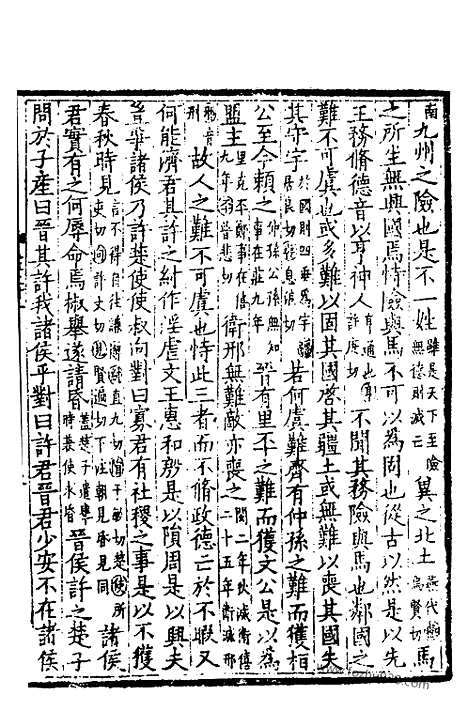 南九州之險也是不一姓雖是天下至險無德則滅亡冀之北土燕代馬
之所生無興國焉恃險與馬不可以為固也從古以然是以先
王務脩德音以亨神人亨通也不聞其務險與馬也鄰國之
難不可虞也或多難以固其國啓其疆土或無難以喪其國失
其守宇於國則四垂為宇若何虞難齊有仲孫之難而獲桓
公至今賴之仲孫公孫無知事在莊九年晉有里丕之難而獲文公是以為
盟主里克丕鄭事在僖九年衛邢無難敵亦喪之閔二年狄滅衛僖二十五年衛滅邢
故人之難不可虞也恃此三者而不脩政德亡於不暇又
何能濟君其許之紂作淫虐文王惠和殷是以隕周是以興夫
豈爭諸侯乃許楚使使叔向對曰寡君有社稷之事是以不獲
春秋時見言不得自往謙辭諸侯
君實有之何辱命焉椒舉遂請昏蓋楚子遣舉時兼使求昏晉侯許之楚子
問於子產曰晉其許我諸侯乎對曰許君晉君少安不在諸侯